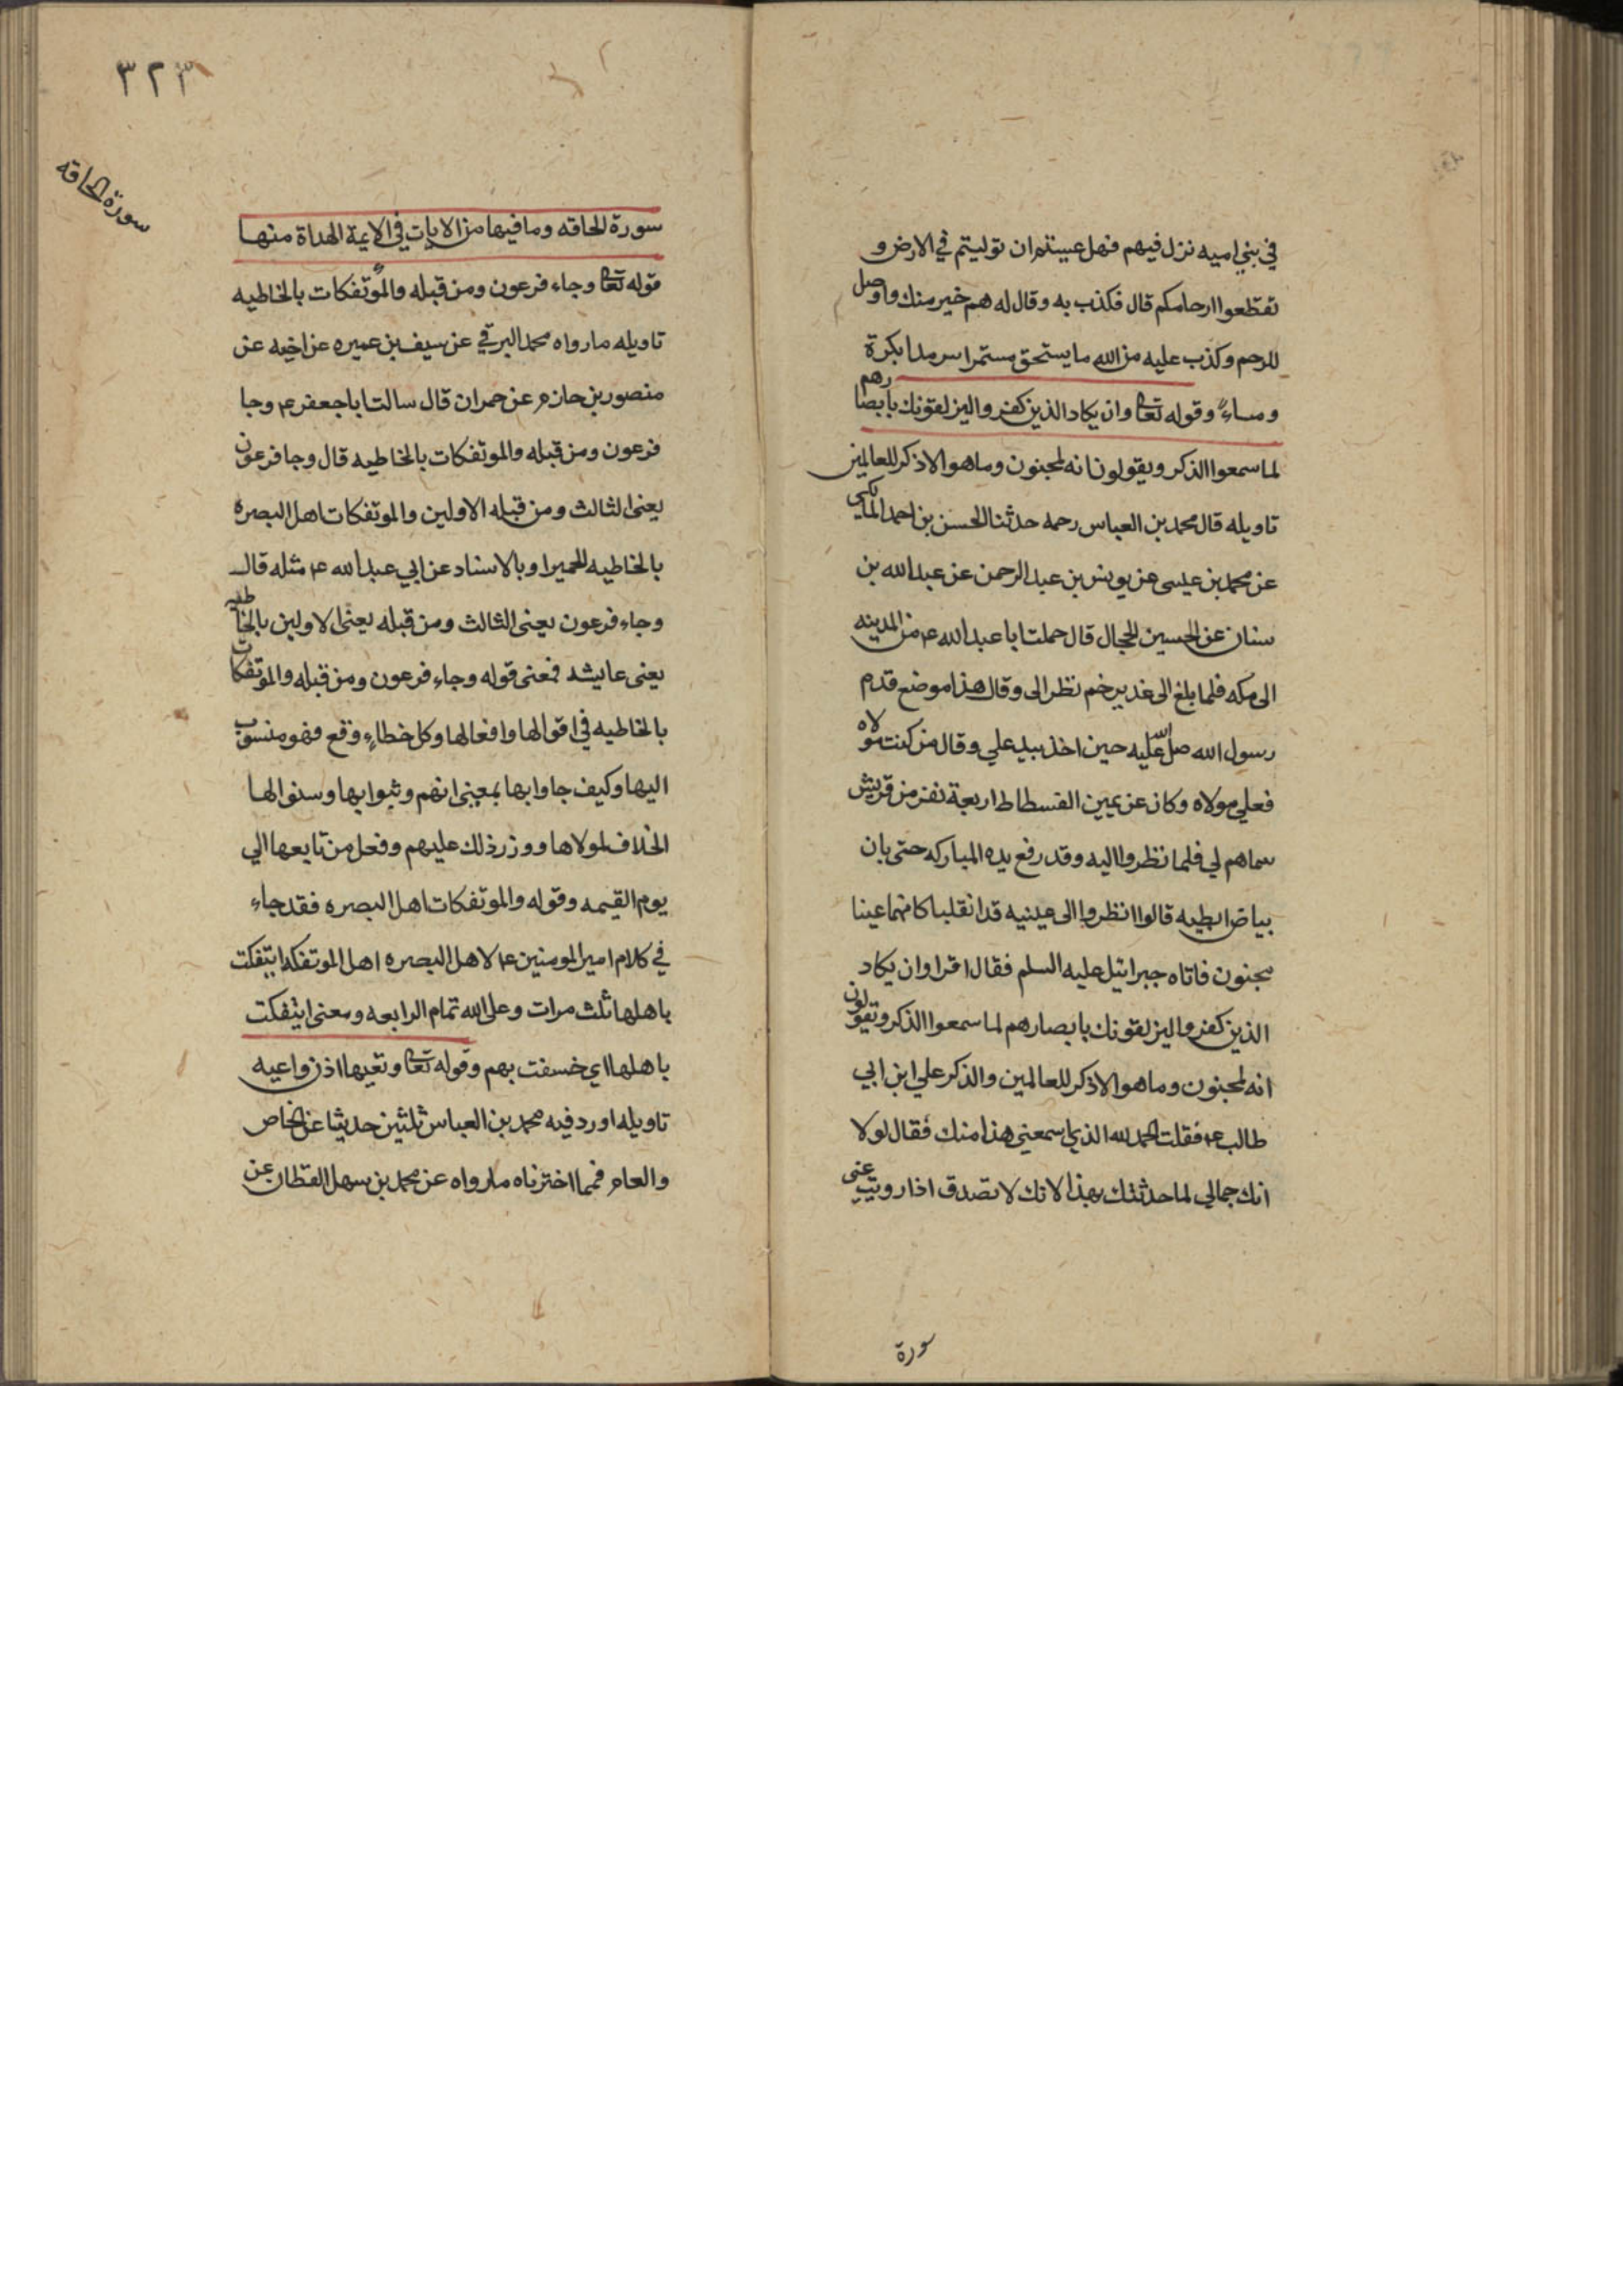 في بني اميه نزل فيهم فهل عسيتم ان توليتم في الارض و
تقطعوا ارحامكم قال فكذب به وقال له هم خير منك واوصل
للرحم وكذب عليه من الله ما يستحق مستمرا سرمدا بكرة
ومساء وقوله تعا وان يكاد الذين كفروا ليزلقونك بابصارهم
لما سمعوا الذكر ويقولون انه لمجنون وما هو الا ذكر للعالمين
تاويله قال محمد بن العباس رحمه حدثنا الحسن بن احمد المالكي
عن محمد بن عيسى عن يونس بن عبد الرحمن عن عبد الله بن
سنان عن الحسين الجمال قال حملت ابا عبد الله ع من المدينه
الى مكه فلما بلغ الى غدير خم نظر الى وقال هذا موضع قدم
رسول الله صل الله عليه حين اخذ بيد علي وقال من كنت مولاه
فعلي مولاه وكان عن يمين الفسطاط اربعة نفر من قريش
سماهم لي فلما نظروا اليه وقد رفع يده المباركه حتى بان
بياض ابطيه قالوا انظروا الى عينيه قد انقلبا كانهما عينا
مجنون فاتاه جبرائيل عليه السلم فقال اقرا وان يكاد
الذين كفروا ليزلقونك بابصارهم لما سمعوا الذكر ويقولون
انه لمجنون وما هو الا ذكر للعالمين والذكر علي ابن ابي
طالب ع فقلت الحمد لله الذي اسمعني هذا منك فقال لولا
انك جمالي لما حدثتك بهذا لانك لا تصدق اذا رويت عني
سورة
٣٢٣
سورة الحاقه
سورة الحاقه وما فيها من الايات في الايمة الهداة منها
قوله تعا وجاء فرعون ومن قبله والموتفكات بالخاطيه
تاويله ما رواه محمد البرقي عن سيف بن عميره عن اخيه عن
منصور بن حازم عن حمران قال سالت ابا جعفر ع وجا
فرعون ومن قبله والموتفكات بالخاطيه قال وجا فرعون
يعني الثالث ومن قبله الاولين والموتفكات اهل البصره
بالخاطيه الحميرا وبالاسناد عن ابي عبد الله ع مثله قال
وجاء فرعون يعني الثالث ومن قبله يعني الاولين بالخاطيه
يعني عايشه فمعنى قوله وجاء فرعون ومن قبله والموتفكات
بالخاطيه في اقوالها وافعالها وكل خطاء وقع فهو منسوب
اليها وكيف جاوا بها بمعنى انهم وثبوا بها وسنوا لها
الخلاف لمولاها ووزر ذلك عليهم وفعل من تابعها الي
يوم القيمه وقوله والموتفكات اهل البصره فقد جاء
في كلام امير المومنين ع لاهل البصره اهل الموتفكه ايتفكت
باهلها ثلث مرات وعلى الله تمام الرابعه ومعنى ايتفكت
باهلها اي خسفت بهم وقوله تعا وتعيها اذن واعيه
تاويله اورد فيه محمد بن العباس ثلثين حديثا عن الخاص
والعام فمما اخترناه ما رواه عن محمد بن سهل القطان عن